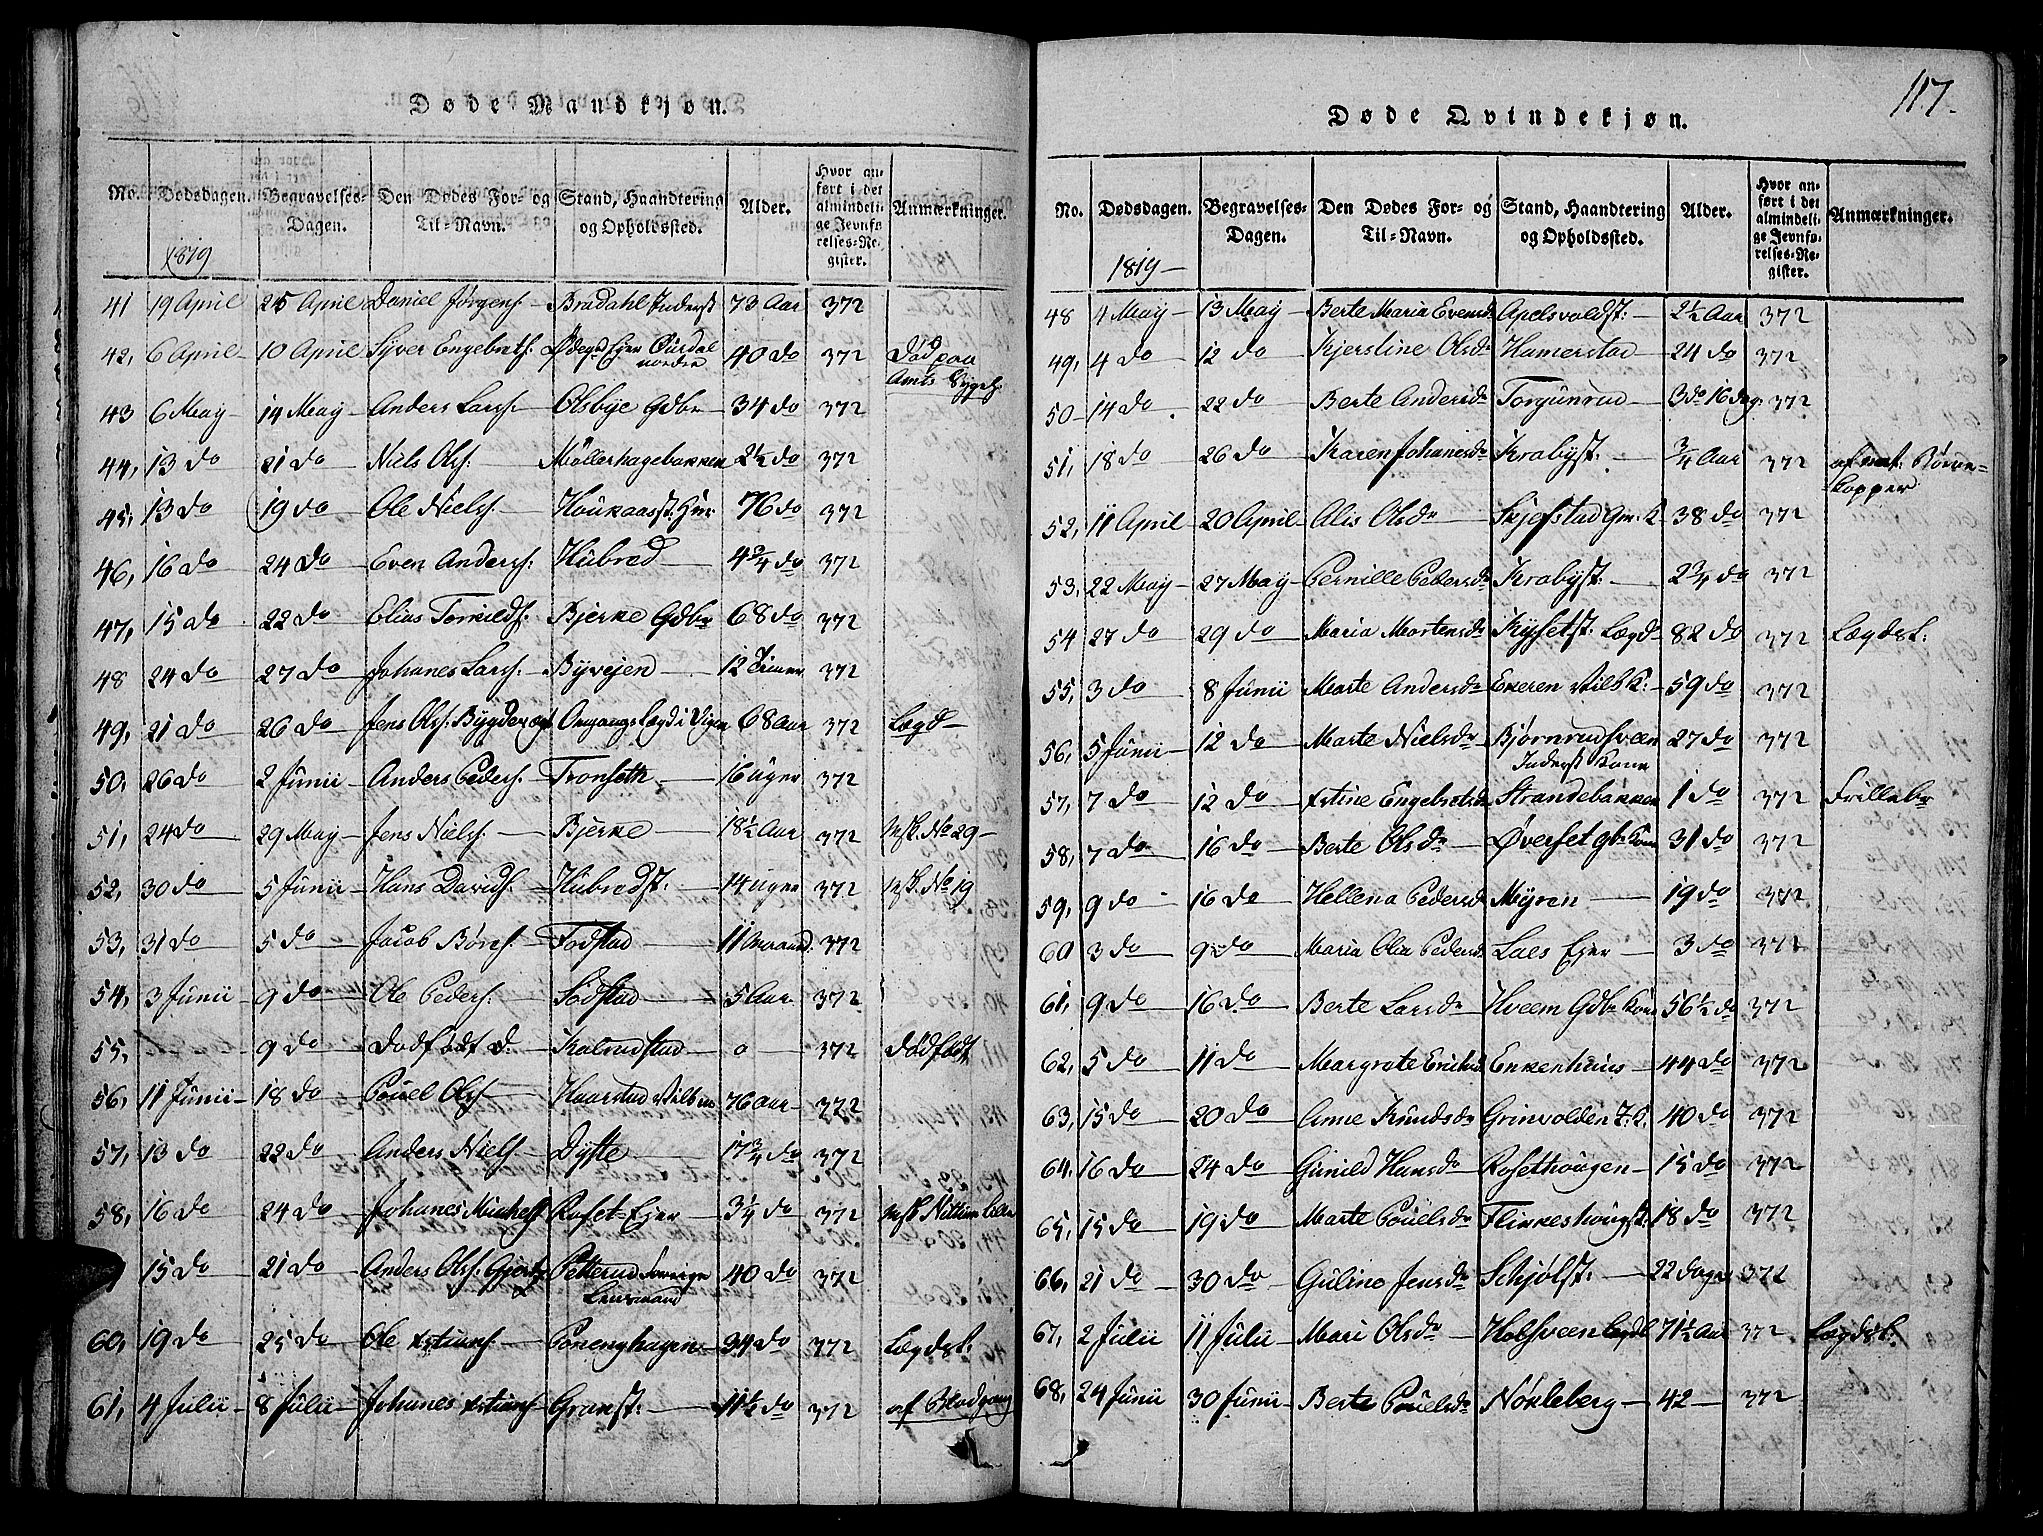 Døde Mandkjøn.
No. Dødsdagen. Begravelses-Dagen. Den Dødes For- og Til-Navn. Stand, Haandtering og Opholdssted. Alder. Hvor anført i det almindelige Jevnførelses-Register. Anmærkninger.
1819
41 19 April 25 April Daniel Jørgens: Bradahl Inderst 73 Aar 372
42, 6 April 10 April Syver Engebrets: Ødegd Ejer Ourdal nordre 40 do 372 Død paa Amts Sygeh.
43 6 May 14 May Anders Lars: Olsbye Gdbr 34 do 372
44, 13 do 21 do Niels Ols: Møllerhagebakken 2½ do 372
45, 13 do 19 do Ole Niels: Houkaasst. 76 do 372
46, 16 do 24 do Even Anders: Hubred 4¾ do 372
47, 15 do 22 do Elias Torkilds: Bjerke Gdbr 68 do 372
48 24 do 27 do Johanes Lars: Byvejen 12 Timer 372
49, 21 do 26 do Jens Ols: Omgangslægd i Vigen 68 Aar 372 Lægd
50, 26 do 2 Junii Anders Peders: Tronseth 16 Uger 372
51, 24 do 29 May Jens Niels: Bjerke 18½ Aar 372 No 29
52, 30 do 5 Junii Hans Davids: Hubredst: 14 Uger 372 No 19
53, 31 do 5 do Jacob Børes: Fodstad 11 Maaned 372
54, 3 Junii 9 do Ole Peders: Sødstad 5 Aar 372
55, 9 do Dødfødt D. Kalrudstad 0 372 Dødfødt
56, 11 Junii 18 do Pouel Ols: Haarstad 76 Aar 372
57, 13 do 22 do Anders Niels: Dyste 17¾ do 372
58, 16 do 24 do Johanes Michels: Roset Ejer 3¼ do 372
15 do 21 do Anders Ols: Gjørtz Petterud Lensmand 40 do 372
60, 19 do 25 do Ole Xstians: Conenghagen 34 do 372 Lægdsl:
61, 4 Julii 8 Julii Johanes Xstians: Granst: 11½ do 372 af Blodgang
117.
Døde Qvindekjøn.
No. Dødsdagen. Begravelses-Dagen. Den Dødes For- og Til-Navn. Stand, Haandtering og Opholdssted. Alder. Hvor anført i det almindelige Jevnførelses-Register. Anmærkninger.
1819
48 4 May 13 May Berte Maria Evensdr Apelsvoldst: 2½ Aar 372
49, 4 do 12 do Kjerstine Olsdr Hamerstad 24 do 372
50 14 do 22 do Berte Andersdr Torgunrud 3 do 16 dag. 372
51, 18 do 26 do Karen Johanesdr Krabyst: ¾ Aar 372 af nat: Børnekopper
52, 11 April 20 April Alis Olsdr Skjefstad Gm: K 38 do 372
53, 22 May 27 May Pernille Pedersdr Krabyst: 2¾ do 372
54 27 do 29 do Maria Mortensdr Kysetst: Lægd 82 do 372 Lægdsl:
55, 3 do 8 Junii Marte Andersdr Ekeren Vilb K: 59 do 372
56, 5 Junii 12 do Marte Nielsdr Bjørnrudsveen Inderst Kone 27 do 372
57, 7 do 12 do Xstine Engebretsdr Strandebakken 1 do 372 Frillebr
58, 7 do 16 do Berte Olsdr Øverset gbr Kone 31 do 372
59, 9 do 16 do Hellena Pedersdr Myren 19 do 372
60 3 do 9 do Maria Olia Pedersdr Laes Ejer 3 do 372
61, 9 do 16 do Berte Larsdr Hveem Gdbr Kone 56½ do 372
62, 5 do 11 do Margrete Ericksdr Enkenhuus 44 do 372
63, 15 do 20 do Anne Knudsdr Grinvolden I: K. 40 do 372
64, 16 do 24 do Gunild Hansdr Rosethougen 15 do 372
65, 15 do 19 do Marte Pouelsdr Flinkeshougst: 18 do 372
66, 21 do 30 do Guline Jensdr Schjølst: 22 dage 372
67, 2 Julii 11 Julii Mari Olsdr Holsveen Lægdl 71½ Aar 372 Lægdsl:
68, 24 Junii 30 Junii Berte Pouelsdr Nøkleberg 42 372